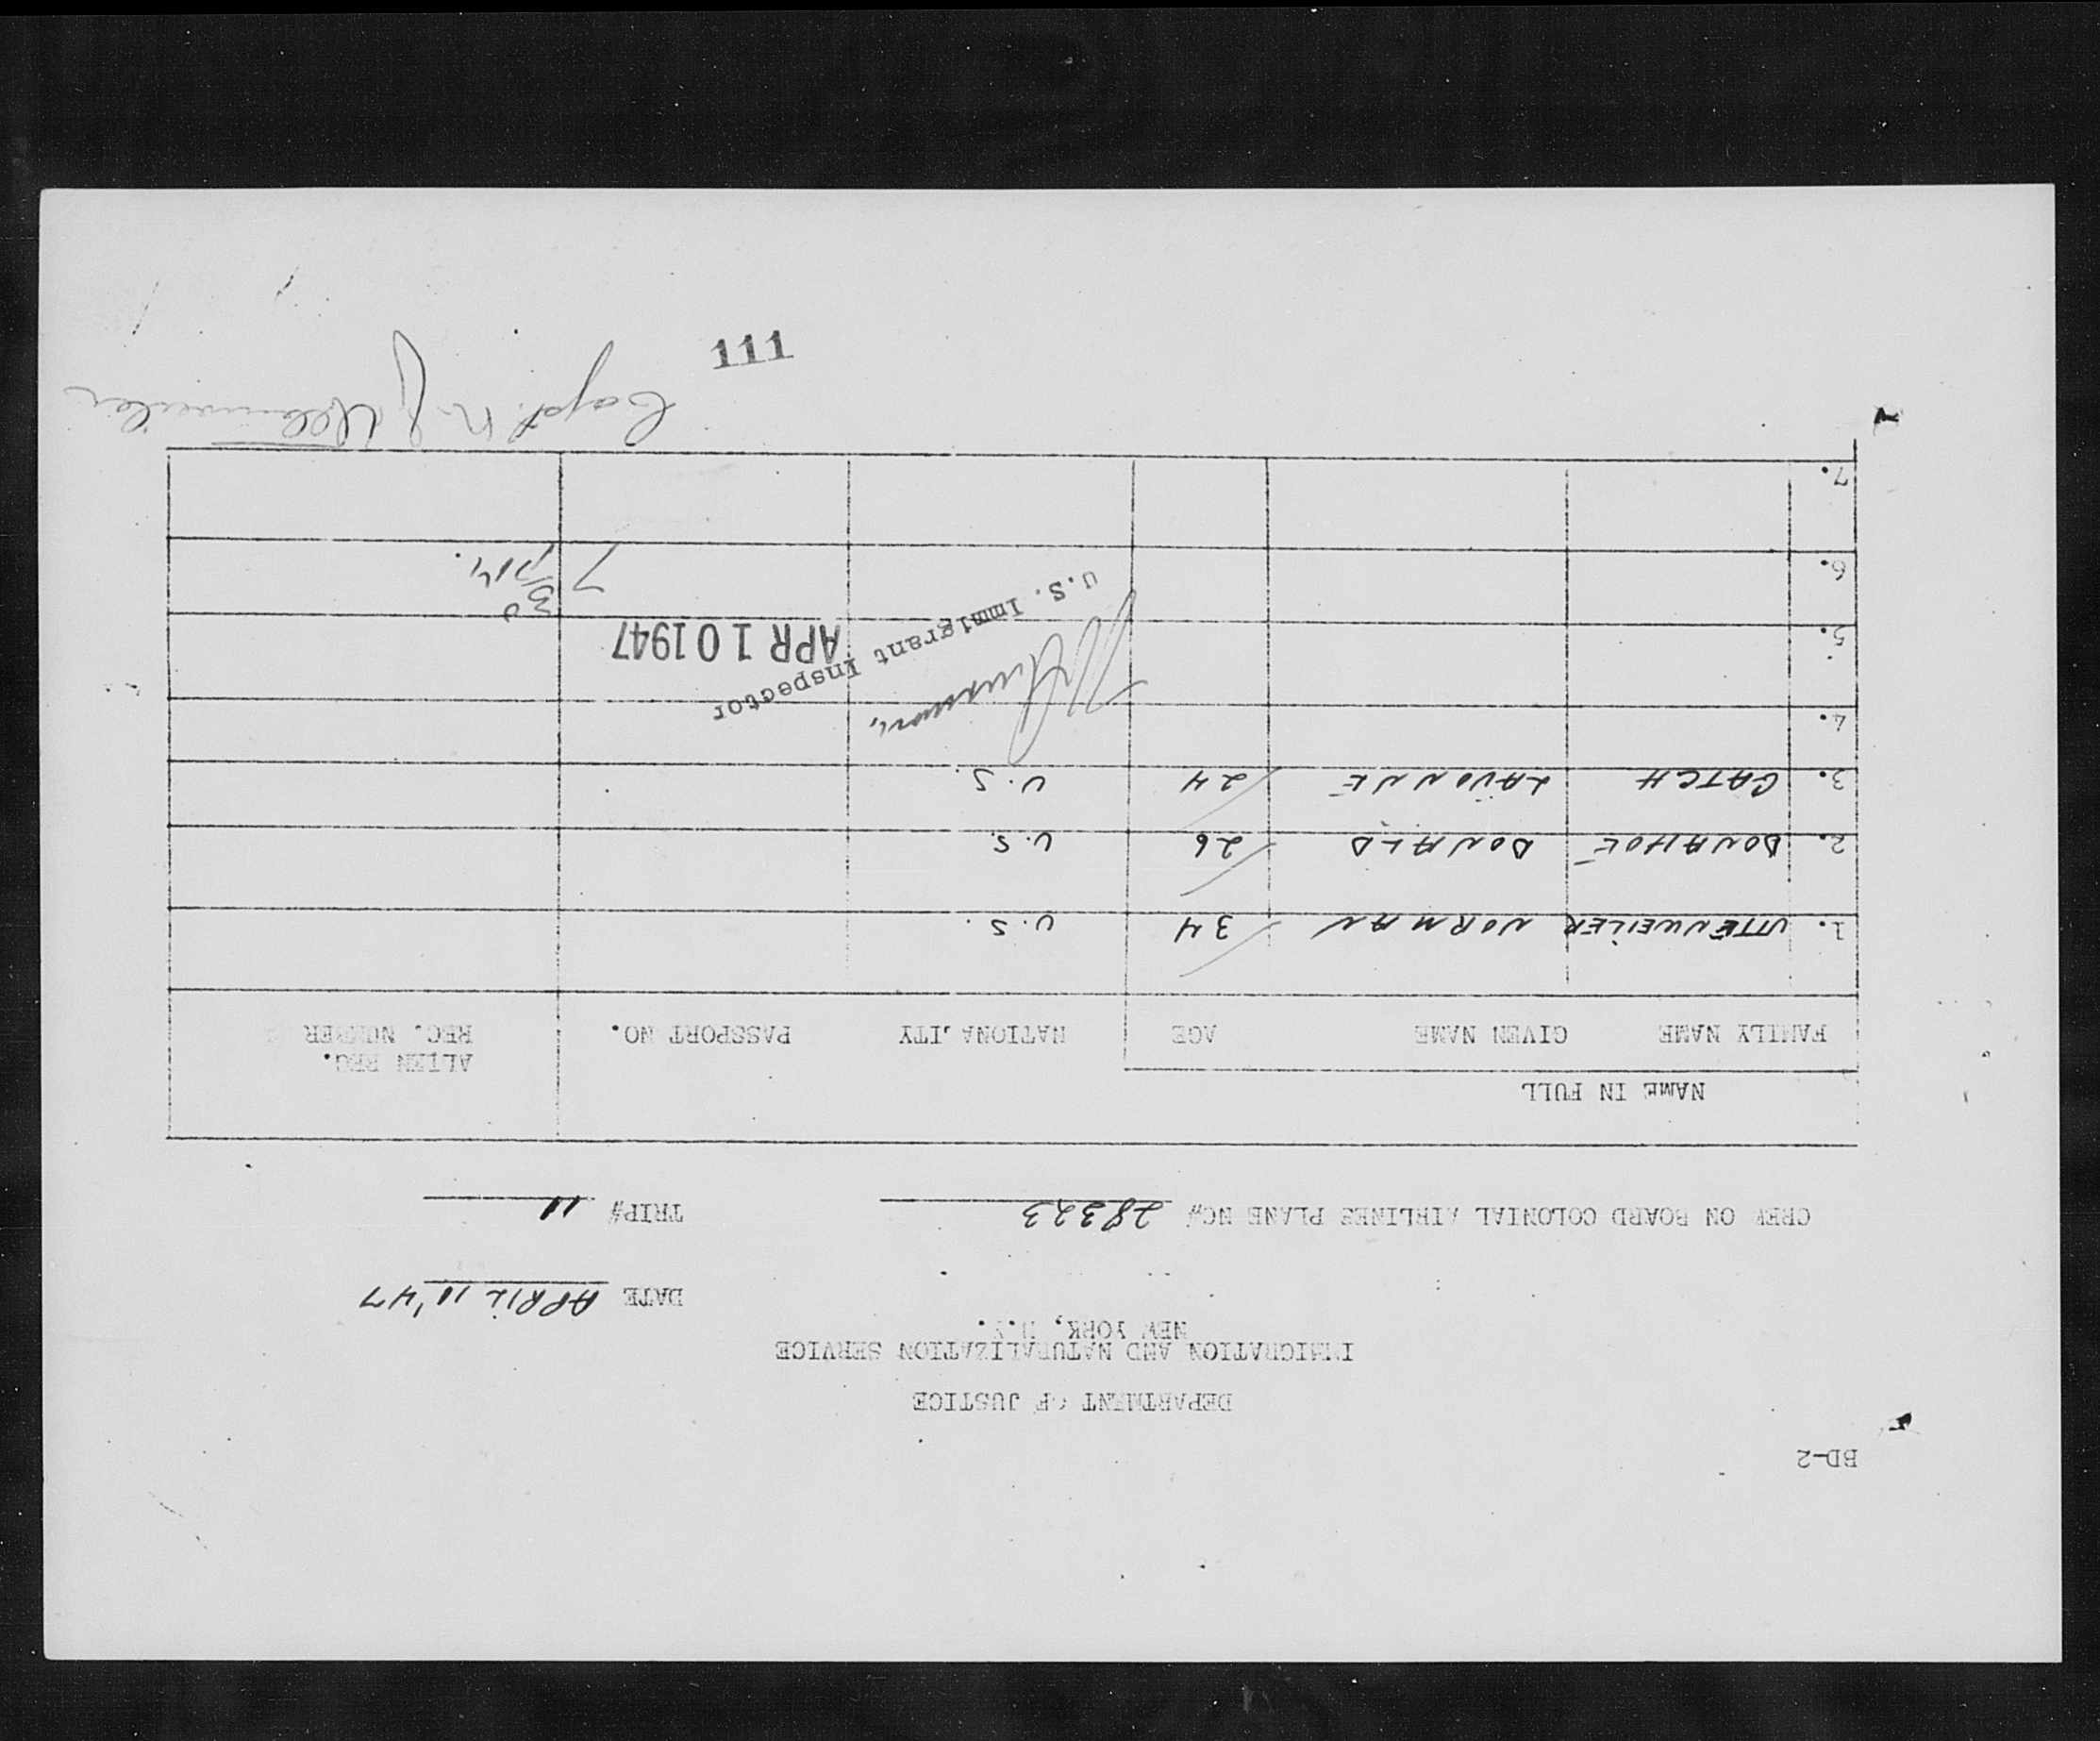 BD-2
DEPARTMENT OF JUSTICE
IMMIGRATION AND NATURALIZATION SERVICE
NEW YORK, N.Y.
DATE APRIL 10'47
CREW ON BOARD COLONIAL AIRLINES PLANE NC# 28323 TRIP# 11
NAME IN FULL
FAMILY NAME GIVEN NAME AGE NATIONALITY PASSPORT NO. ALIEN REG. REC. NUMBER
1. UTTENWEILER NORMAN 34 U.S.
2. DONAHOE DONALD 26 U.S.
3. GATCH LAVONNE 24 U.S.
4.
5.
6.
7.
U.S. Immigrant Inspector
APR 10 1947
7 30 P.M.
Capt. N J Uttenweiler
111